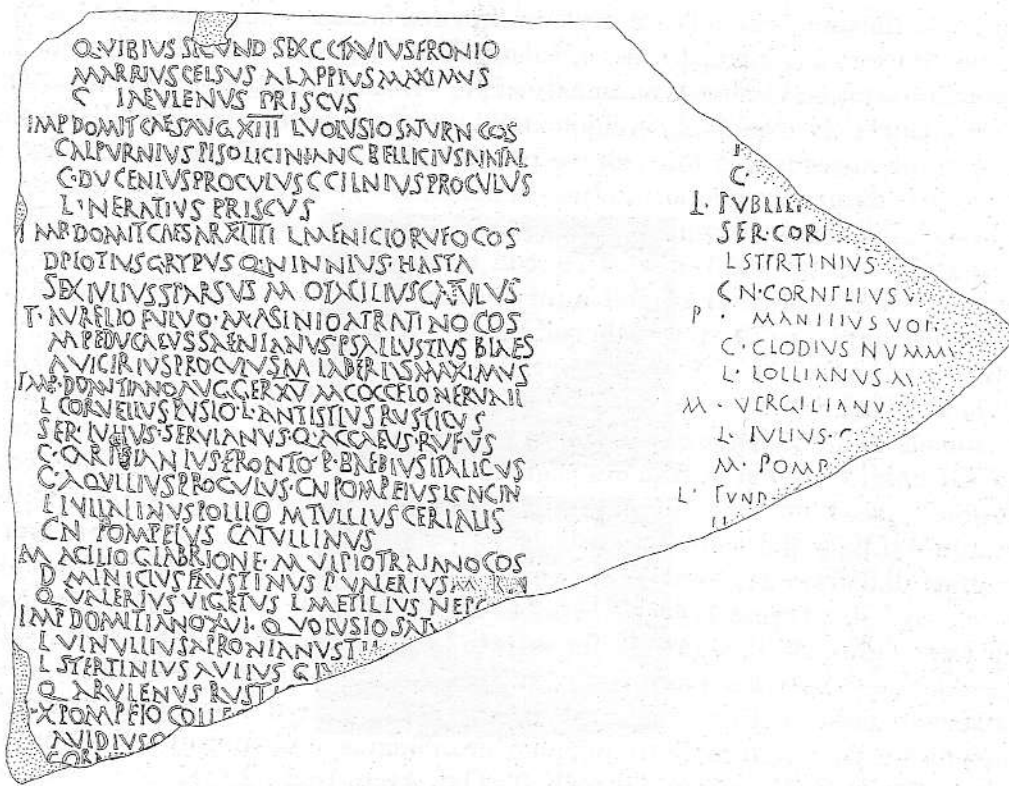 Q VIBIUS SECUND SEX CCTAVIUS FRONIO
MARRIUS CELSUS A LAPPIUS MAXIMUS
C IAEVLENUS PRISCUS
IMP DOMIT CAES AUG XIIII L VOLUSIO SATURN COS
CALPURNIUS PISO LICINIAN C BELLICIUS NATAL
C · DUCENIUS PROCULUS C CILNIUS PROCULUS
L · NERATIUS PRISCVS
IMP DOMIT CAESAR XIIII L MENICIO RUFO COS
D PIOTIUS GRYPUS Q · NINNIUS · HASTA
SEX IULIUS SPARSUS M OTACILIUS CATULUS
T · AURELIO FULVO · M · ASINIO ATRATINO COS
M PEDUCAEUS SAENIANUS P SALLUSTIUS BLAES
AVICIRIUS PROCULUS M LABERIUS MAXIMUS
IMP · DOMITIANO AUG GER XV M COCCELO NERVA II
L CORNELIUS PUSIO · L · ANTISTIUS RUSTICUS
SER · IULIUS · SERVIANUS · Q · ACCAEUS · RUFUS
C · FRONTO · P · BAEBIUS ITALICUS
C · AQULLIUS PROCULUS · CN POMPEIUS LONGIN
L POLLIO M TULLIUS CERIALIS
CN POMPEIUS CATULLINUS
M ACILIO GLABRIONE · M ULPIO TRAIANO COS
D MINICIUS FAUSTINUS P VALERIUS
Q VALERIUS VIGETUS L METILIUS NEPO
IMP DOMITIANO XVI · Q VOLUSIO SAT
L VINULLIUS APRONIANUS
L STERTINIUS AVILIUS
Q ARULENUS RUSTIC
X POMPEIO COLLEG
AVIDIUS Q
CORN
C
L · PUBLIL
SER · CORI
L STERTINIUS
CN · CORNELIUS V
P · MANILIUS VOP
C · CLODIUS NUMMI
L · LOLLIANUS M
M · VERGILIANV
L · IULIUS · C
M · POMP
L · FUND